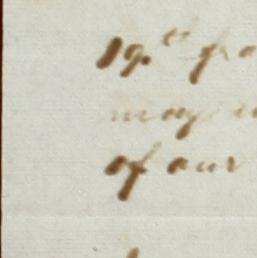 19.th fro
may
of our